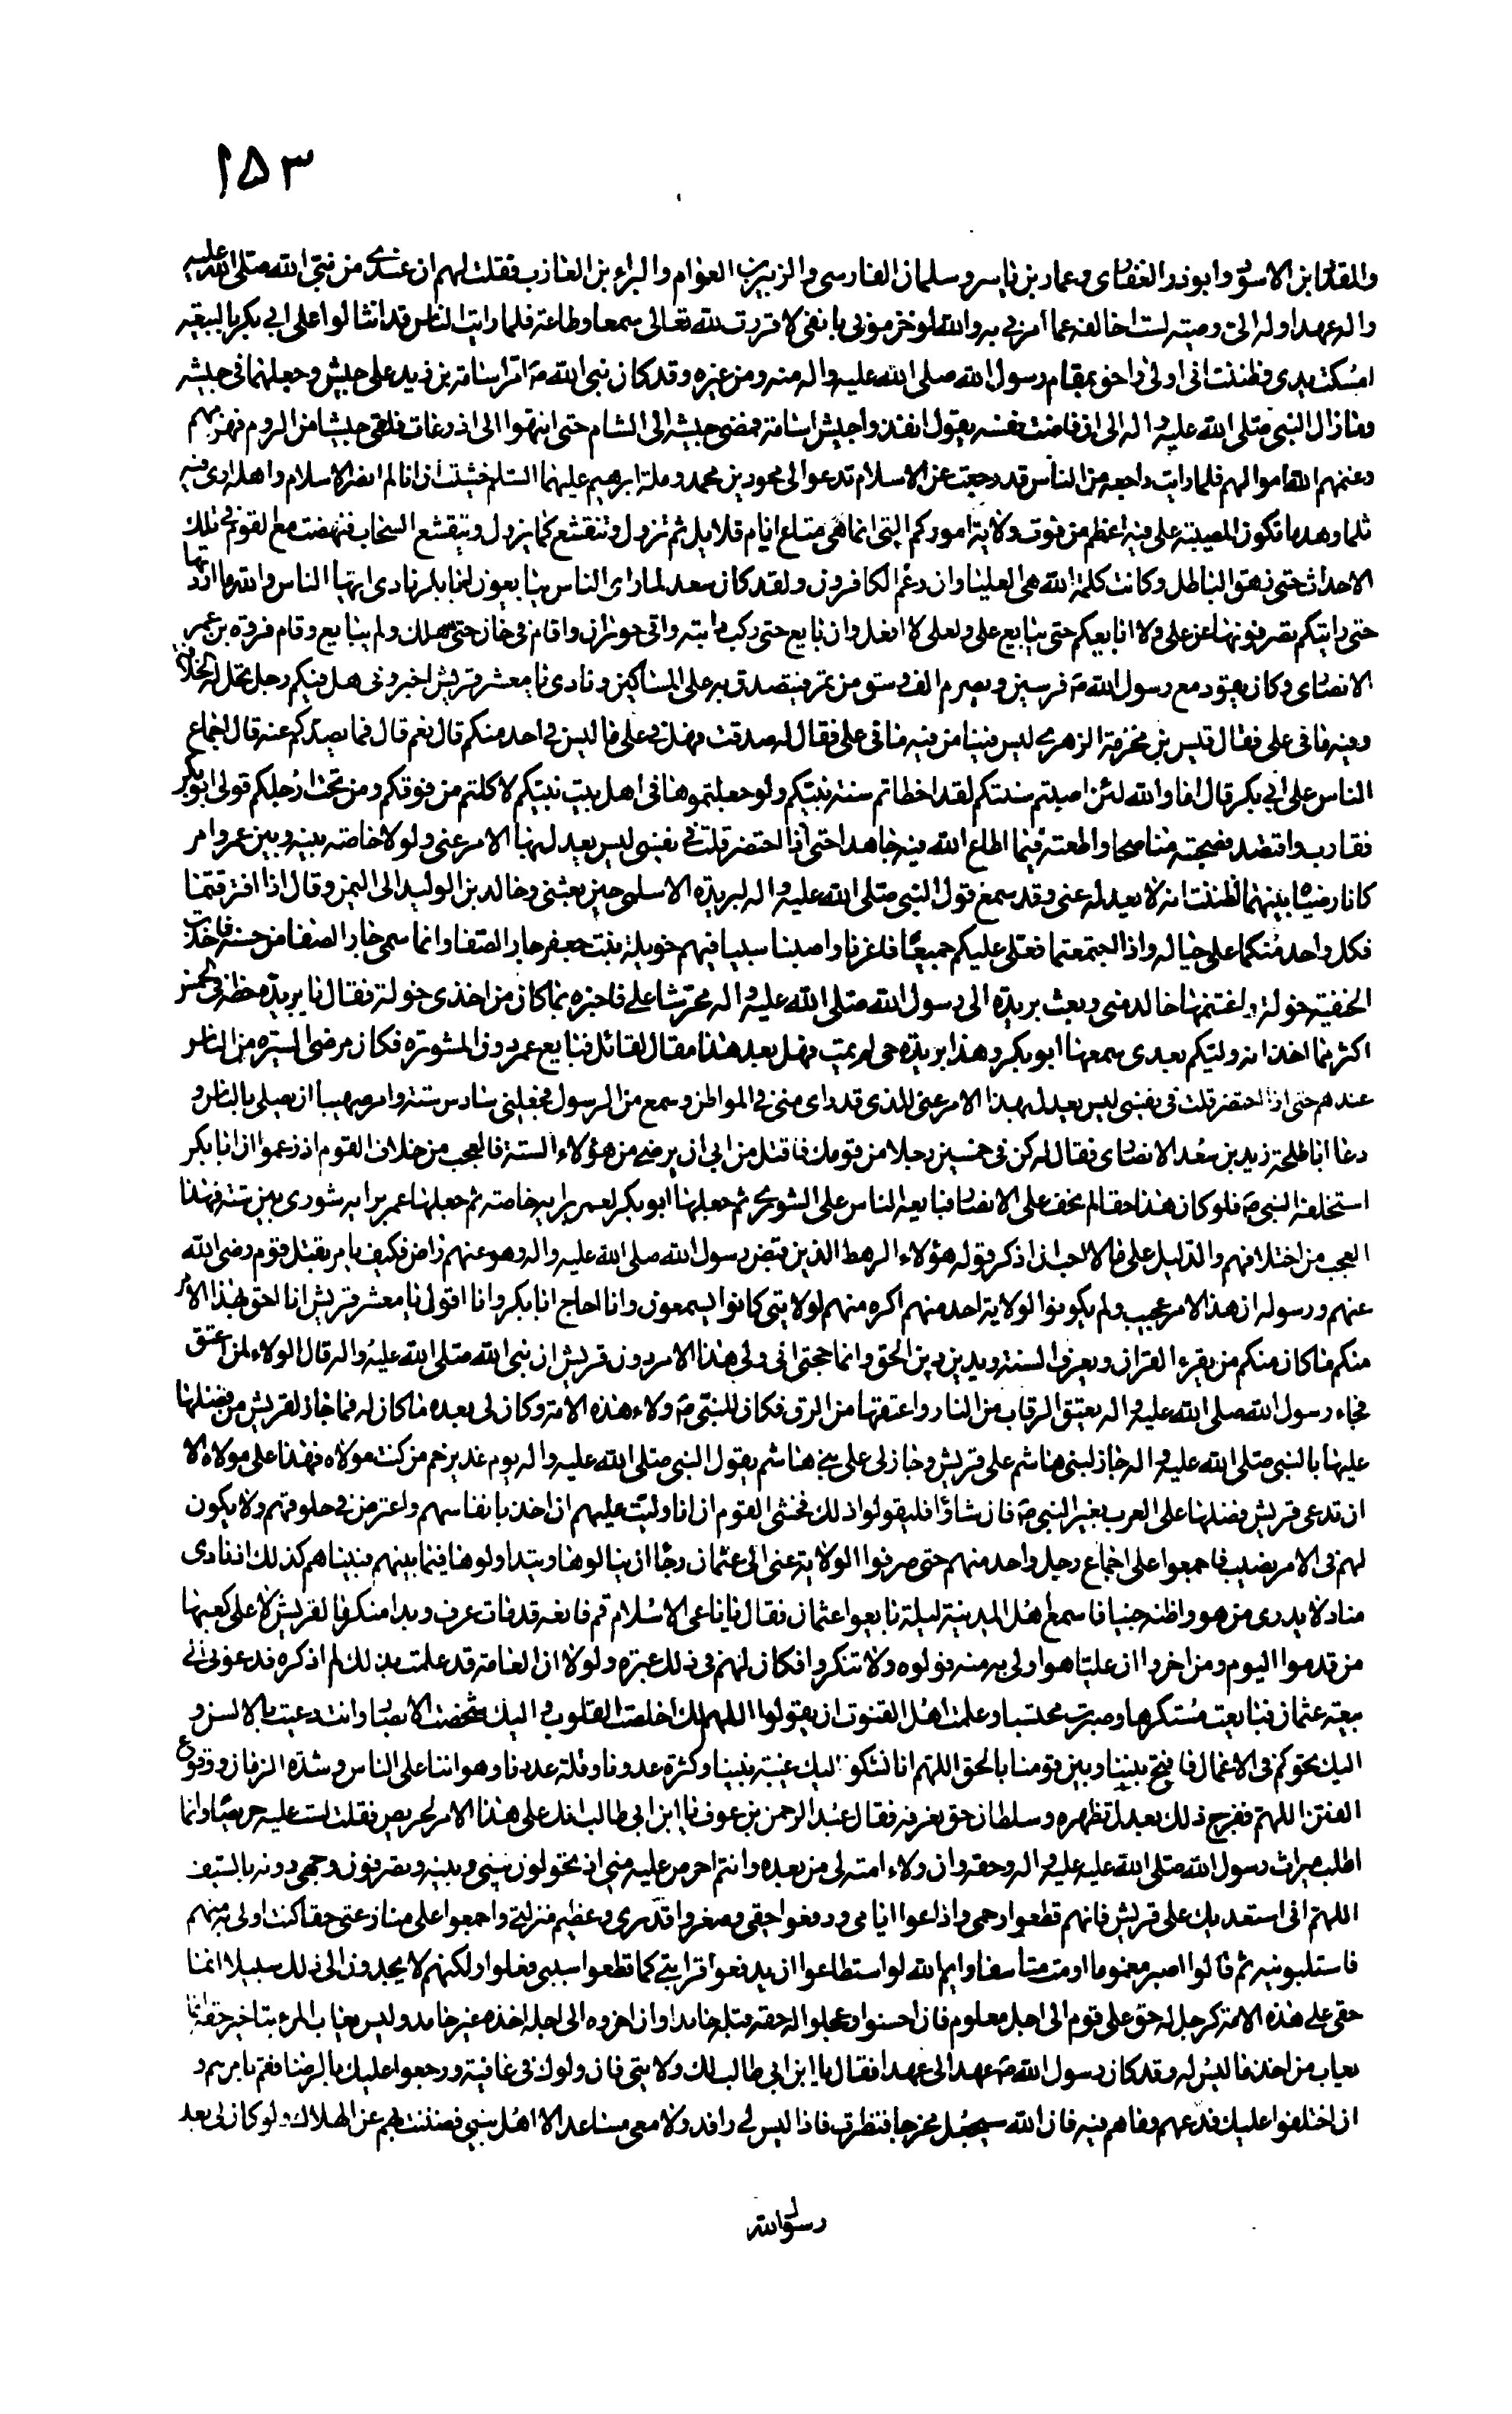 ١٥٣
والمقداد بن الاسود وابوذر الغفاري وعمار بن ياسر وسلمان الفارسي والزبير بن العوام والبراء بن العازب فقلت لهم ان عندي من نبي الله صلى الله عليه
واله عهدا وله الي وصية لست اخالفه عما امرني به والله لو خزموني بانفي لاقررت لله تعالى سمعا وطاعة فلما رايت الناس قد انثالوا على ابي بكر بالبيعة
امسكت يدي وظننت اني اولى واحق بمقام رسول الله صلى الله عليه واله منه ومن غيره وقد كان نبي الله ص امر اسامة بن زيد على جيش وجعلهما في جيشه
وما زال النبي صلى الله عليه واله الى ان فاضت نفسه يقول انفذوا جيش اسامة فمضى جيشه الى الشام حتى انتهوا الى اذرعات فلقي جيشا من الروم فهزمهم
وغنمهم الله اموالهم فلما رايت راجعة من الناس قد رجعت عن الاسلام تدعوا الى محو دين محمد وملة ابرهيم عليهما السلم خشيت ان انا لم انصر الاسلام واهله ارى فيه
ثلما وهدما تكون المصيبة علي فيه اعظم من فوت ولاية اموركم التي انما هي متاع ايام قلايل ثم تزول وتنقشع كما يزول وينقشع السحاب فنهضت مع القوم في تلك
الاحداث حتى زهق الباطل وكانت كلمة الله هي العليا وان رغم الكافرون ولقد كان سعد لما راى الناس يبايعون ابا بكر نادى ايها الناس والله ما اردتها
حتى رايتكم تصرفونها عن علي ولا ابايعكم حتى يبايع علي ولعلي لا افعل وان بايع حتى ركب دابته واتى حوران واقام في خان حتى هلك ولم يبايع وقام فروة بن عمر
الانصاري وكان يقود مع رسول الله ص فرسين ويصرم الف وسق من تمر فيتصدق به على المساكين ونادى يا معشر قريش اخبروني هل فيكم رجل تحل له الخلافة
وفيه ما في علي فقال قيس بن مخزمة الزهري ليس فينا من فيه ما في علي فقال له صدقت فهل في علي ما ليس في احد منكم قال نعم قال فما يصدكم عنه قال اجماع
الناس على ابي بكر قال اما والله لئن اصبتم سنتكم لقد اخطاتم سنة نبيكم ولو جعلتموها في اهل بيت نبيكم لاكلتم من فوقكم ومن تحت ارجلكم فولى ابو بكر
فقارب واقتصد فصحبته مناصحا واطعته فيما اطاع الله فيه جاهدا حتى اذا احتضر قلت في نفسي ليس يعدل بهذا الامر عني ولولا خاصة بينه وبين عمر وامر
كانا رضياه بينهما لظننت انه لا يعدله عني وقد سمع قول النبي صلى الله عليه واله لبريدة الاسلمي حين بعثني وخالد بن الوليد الى اليمن وقال اذا افترقتما
فكل واحد منكما على حياله واذا اجتمعتما فعلي عليكم جميعا فاغرنا واصبنا سبيا فيهم خويلة بنت جعفر جار الصفا وانما سمي جار الصفا من حسنه فاخذت
الحنفية خولة واغتنمها خالد مني وبعث بريدة الى رسول الله صلى الله عليه واله محرشا علي فاخبره بما كان من اخذي خولة فقال يا بريدة حظه في الخمس
اكثر مما اخذ انه وليكم بعدي سمعها ابو بكر وهذا بريدة حي لم يمت فهل بعد هذا مقال لقائل فبايع عمر دون المشورة فكان مرضي السيرة من الناس
عندهم حتى اذا احتضر قلت في نفسي ليس يعدل بهذا الامر عني للذي قد راى مني في المواطن وسمع من الرسول فجعلني سادس ستة وامر صهيبا ان يصلي بالناس و
دعا ابا طلحة زيد بن سعد الانصاري فقال له كن في خمسين رجلا من قومك فاقتل من ابى ان يرضى من هؤلاء الستة فالعجب من خلاف القوم اذ زعموا ان ابا بكر
استخلفه النبي ص فلو كان هذا حقا لم يخف على الانصار فبايعه الناس على الشورى ثم جعلها ابو بكر لعمر برايه خاصة ثم جعلها عمر برايه شورى بين ستة فهذا
العجب من اختلافهم والدليل على ما لا احب ان اذكر قوله هؤلاء الرهط الذين قبض رسول الله صلى الله عليه واله وهو عنهم راض فكيف يامر بقتل قوم رضي الله
عنهم ورسوله ان هذا الامر عجيب ولم يكونوا لولاية احد منهم اكره منهم لولايتي كانوا يسمعون وانا احاج ابا بكر وانا اقول يا معشر قريش انا احق بهذا الامر
منكم ما كان منكم من يقرء القران ويعرف السنة ويدين دين الحق وانما حجتي اني ولي هذا الامر دون قريش ان نبي الله صلى الله عليه واله قال الولاء لمن اعتق
فجاء رسول الله صلى الله عليه واله يعتق الرقاب من النار واعتقها من الرق فكان للنبي ص ولاء هذه الامة وكان لي بعده ما كان له فما جاز لقريش من فضلها
عليها بالنبي صلى الله عليه واله جاز لبني هاشم على قريش وجاز لي على بني هاشم يقول النبي صلى الله عليه واله يوم غدير خم من كنت مولاه فهذا علي مولاه الا
ان تدعي قريش فضلها على العرب بغير النبي ص فان شاؤا فليقولوا ذلك فخشي القوم ان انا وليت عليهم ان اخذ بانفاسهم واعترض في حلوقهم ولا يكون
لهم في الامر نصيب فاجمعوا علي اجماع رجل واحد منهم حتى صرفوا الولاية عني الى عثمان رجاء ان ينالوها ويتداولوها فيما بينهم فبيناهم كذلك اذ نادى
مناد لا يدرى من هو واظنه جنيا فاسمع اهل المدينة ليلة بايعوا عثمان فقال يا ناعي الاسلام قم فانعه قد مات عرف وبدا منكر ما لقريش لا علي كعبها
من قدموا اليوم ومن اخروا ان عليا هو اولى به منه فولوه ولا تنكروا فكان لهم في ذلك عبرة ولولا ان العامة قد علمت بذلك لم اذكره فدعوني الى
بيعة عثمان فبايعت مستكرها وصبرت محتسبا وعلمت اهل القنوت ان يقولوا اللهم لك اخلصت القلوب واليك شخصت الابصار وانت دعيت بالالسن و
اليك تحوكم في الاعمال فافتح بيننا وبين قومنا بالحق اللهم انا نشكو اليك غيبة نبينا وكثرة عدونا وقلة عددنا وهواننا على الناس وشدة الزمان ووقوع
الفتن اللهم ففرج ذلك بعدل تظهره وسلطان حق تعرفه فقال عبد الرحمن بن عوف يا ابن ابي طالب انك على هذا الامر لحريص فقلت لست عليه حريصا وانما
اطلب ميراث رسول الله صلى الله عليه عليه واله وحقه وان ولاء امته لي من بعده وانتم احرص عليه مني اذ تحولون بيني وبينه وتصرفون وجهي دونه بالسيف
اللهم اني استعديك على قريش فانهم قطعوا رحمي واذاعوا ايامي ودفعوا حقي وصغروا قدري وعظيم منزلتي واجمعوا على منازعتي حقا كنت اولى به منهم
فاستلبونيه ثم قالوا اصبر مغموما او مت متأسفا وايم الله لو استطاعوا ان يدفعوا قرابتي كما قطعوا سببي فعلوا ولكنهم لا يجدون الى ذلك سبيلا انما
حقي على هذه الامة كرجل له حق على قوم الى اجل معلوم فان احسنوا وعجلوا له حقه قبله حامدا وان اخروه الى اجله اخذه غير حامد وليس يعاب المرء بتاخير حقه انما
يعاب من اخذ ما ليس له وقد كان رسول الله ص عهد الي عهدا فقال يا ابن ابي طالب لك ولايتي فان ولوك في عافية ورجعوا عليك بالرضا فقم بامرهم و
ان اختلفوا عليك فدعهم وما هم فيه فان الله سيجعل لك مخرجا فنظرت فاذا ليس لي رافد ولا معي مساعد الا اهل بيتي فضننت بهم عن الهلاك ولو كان لي بعد
رسول الله